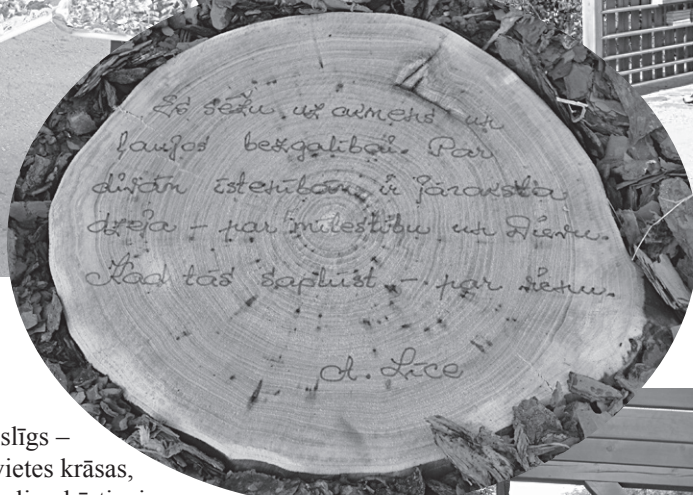 Es sēžu uz akmens un
ļaujos bezgalībai. Par
divām īstenībām ir jāraksta
dzeja – par mīlestību un Dievu.
Kad tās saplūst – par sienu.
A. Līce
slīgs –
vietes krāsas,